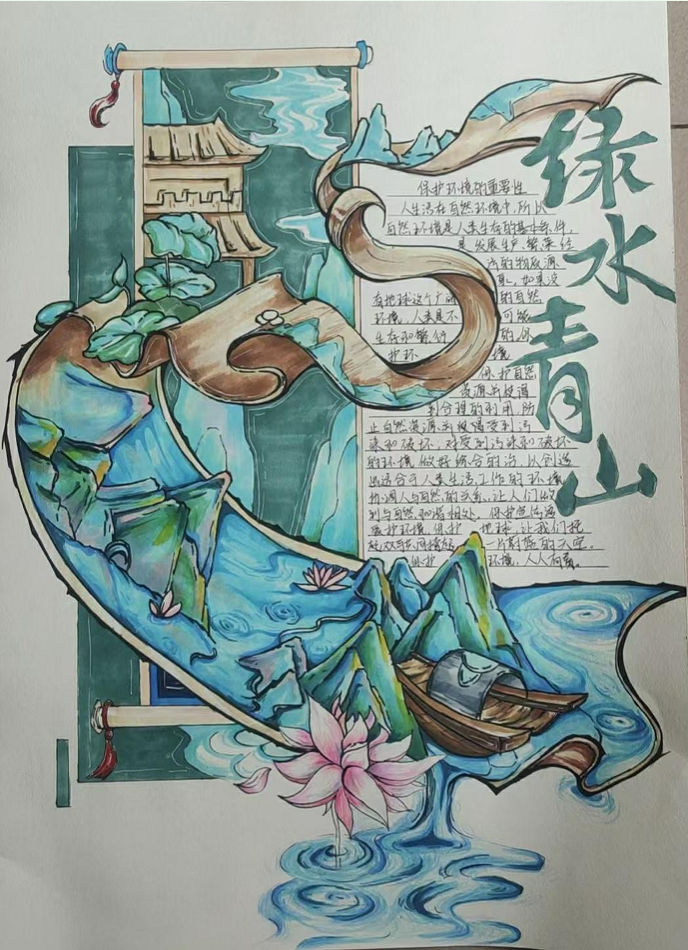 绿水青山
保护环境的重要性
人生活在自然环境中,所以
自然环境是人类生存的基本条件,
是发展生产、繁荣经
济的物质源
泉,如果没
有地球这个广阔的自然
环境,人类是不可能
生存和繁衍的,保
护环境
保护自然
资源并使得
到合理的利用,防
止自然资源
染和破坏,对受到污染和破坏
的环境做好综合的治,以创造
出适合于人类生活、工作的环境,
协调人与自然的关系,让人们做
到与自然和谐相处,保护
爱护环境,保护地球,让我们
一片蔚蓝的天空,
保护环境,人人有责。